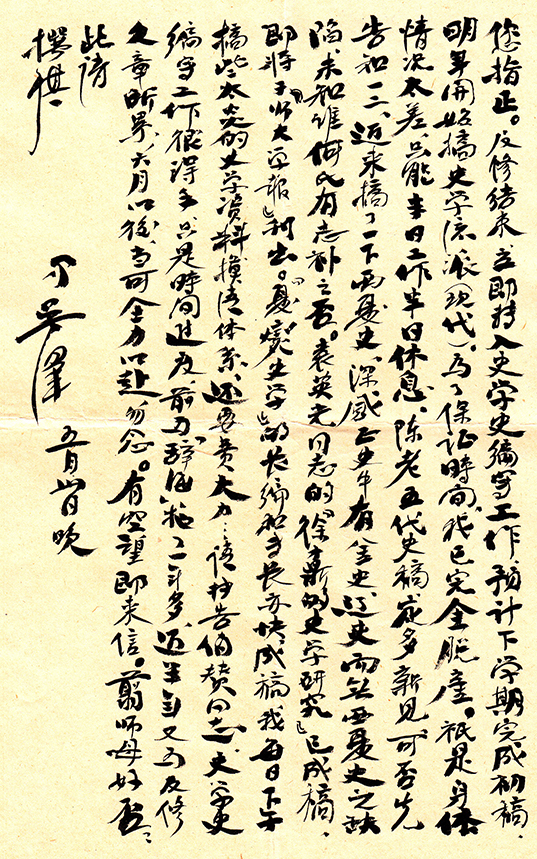 您指正。反修结束，立即持入史学史编写工作，预计下学期完成初稿，
明年开始搞史学流派（现代）。为了保证时间，我已完全脱产。祇是身体
情况太差，只能半日工作半日休息，陈老五代史稿定多新见，可否先
告和一二、近来搞了一下西夏史，深感正史中有金史、辽史而无西夏史之缺
陷，未知谁何氏有志补之否。袁英光同志的《徐鼒的史学研究》已成稿，
即将于《师大学报》刊出。《夏燮史学》的长编和事长亦快成稿，我每日下午
搞些太炎的史学资料摸清体系，还要费大力；请转告伯赞同志，史学史
编写工作很得手，只是时间进度，前为《辞海》拖了二年多，近半年又为反修
文章所累，六月以后，当可全力以赴，勿念。有空望即来信。翦师母好否？
此请
撰祺
吴泽 五月 日晚